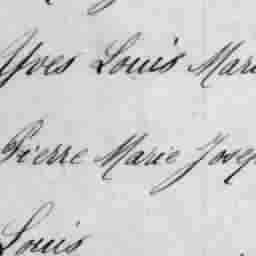 Yves Louis Mari
Pierre Marie Josep
Louis